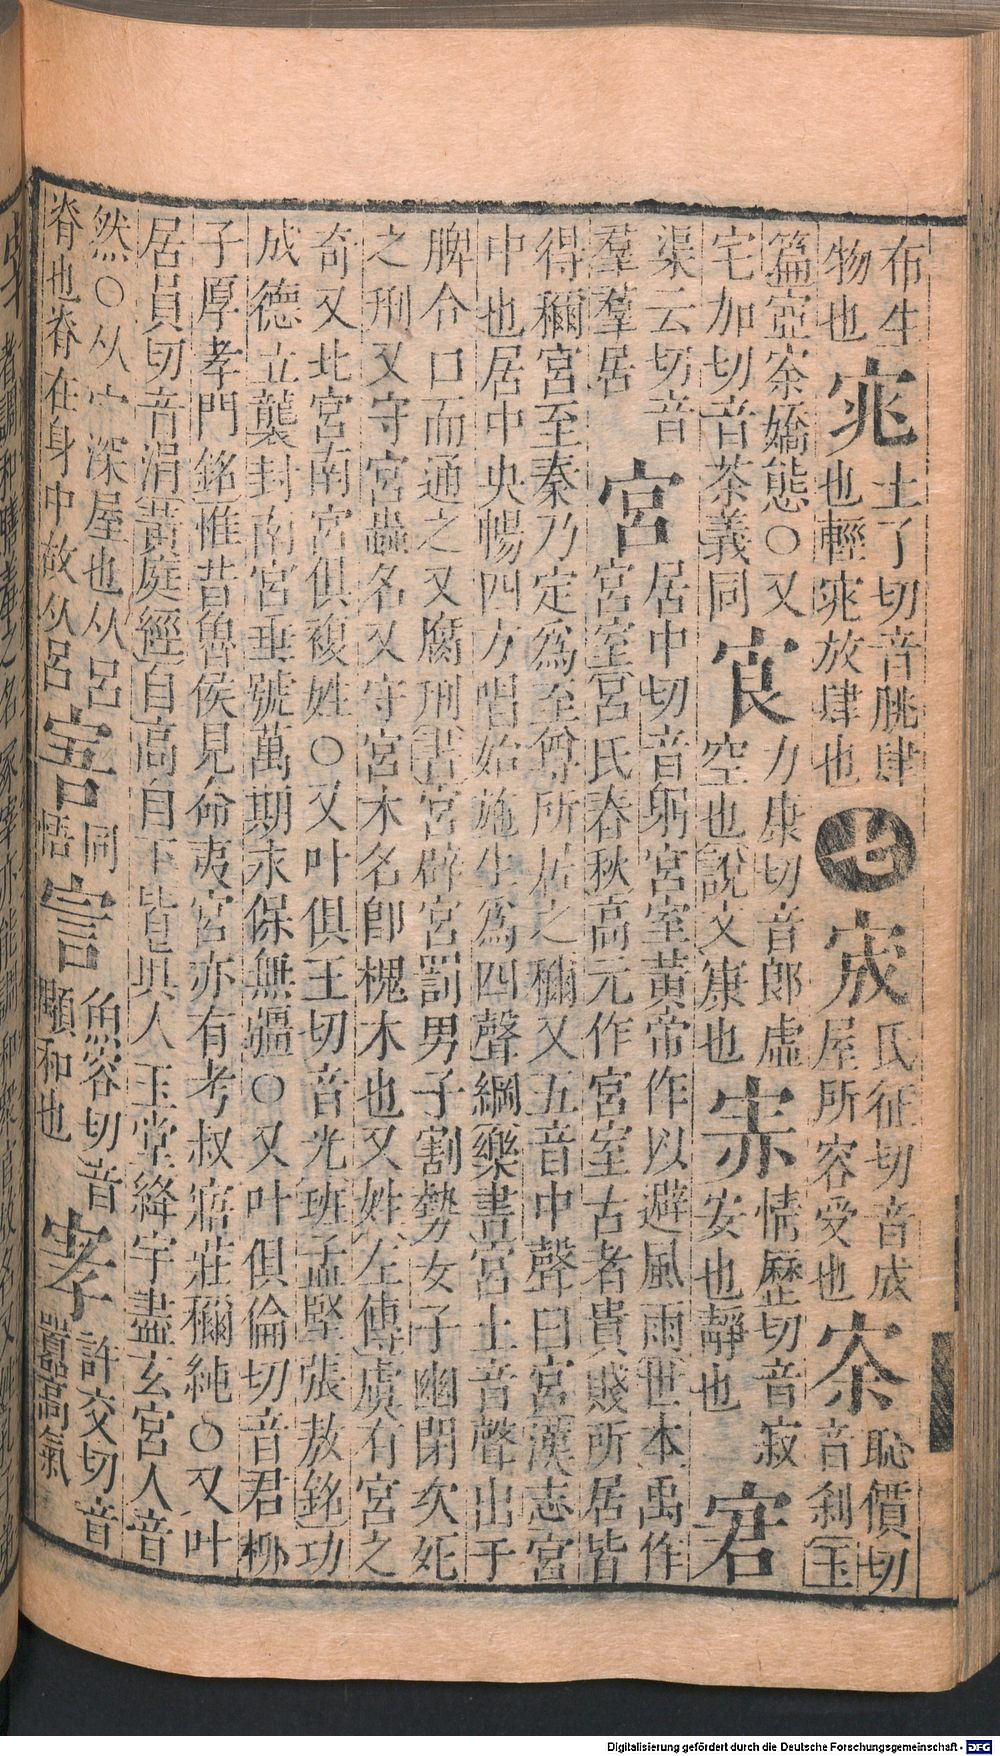 布生
物也
窕
土了切音脁肆
也輕窕放肆也
七
宬
氏征切音成
屋所容受也
㝞
恥價切
音刹玉
篇㝞嬌態○又
宅加切音茶義同
㝗
力康切音郎虛
空也說文康也
宋
情歷切音寂
安也靜也
宭
渠云切音
羣羣居
宮
居中切音躬宮室黃帝作以避風雨世本禹作
宮室宮氏春秋高元作宮室古者貴賤所居皆
得稱宮至秦乃定爲至尊所居之稱又五音中聲曰宮漢志宮
中也居中央暢四方唱始施生爲四聲綱樂書宮土音聲出于
脾合口而通之又腐刑書宮辟宮罰男子割勢女子幽閉次死
之刑又守宮蟲名又守宮木名卽槐木也又姓左傳虞有宮之
奇又北宮南宮俱複姓○又叶俱王切音光班孟堅張敖銘功
成德立襲封南宮垂號萬期永保無疆○又叶俱倫切音君柳
子厚孝門銘惟昔魯侯見命夷宮亦有考叔寤莊稱純○又叶
居員切音涓黃庭經自高自下皆眞人玉堂絳宇盡玄宮人音
然○从宀深屋也从呂
脊也脊在身中故从呂
害
同
悟
言
魚容切音
顒和也
宯
許交切音
嚻高氣
Digitalisierung gefördert durch die Deutsche Forschungsgemeinschaft - DFG